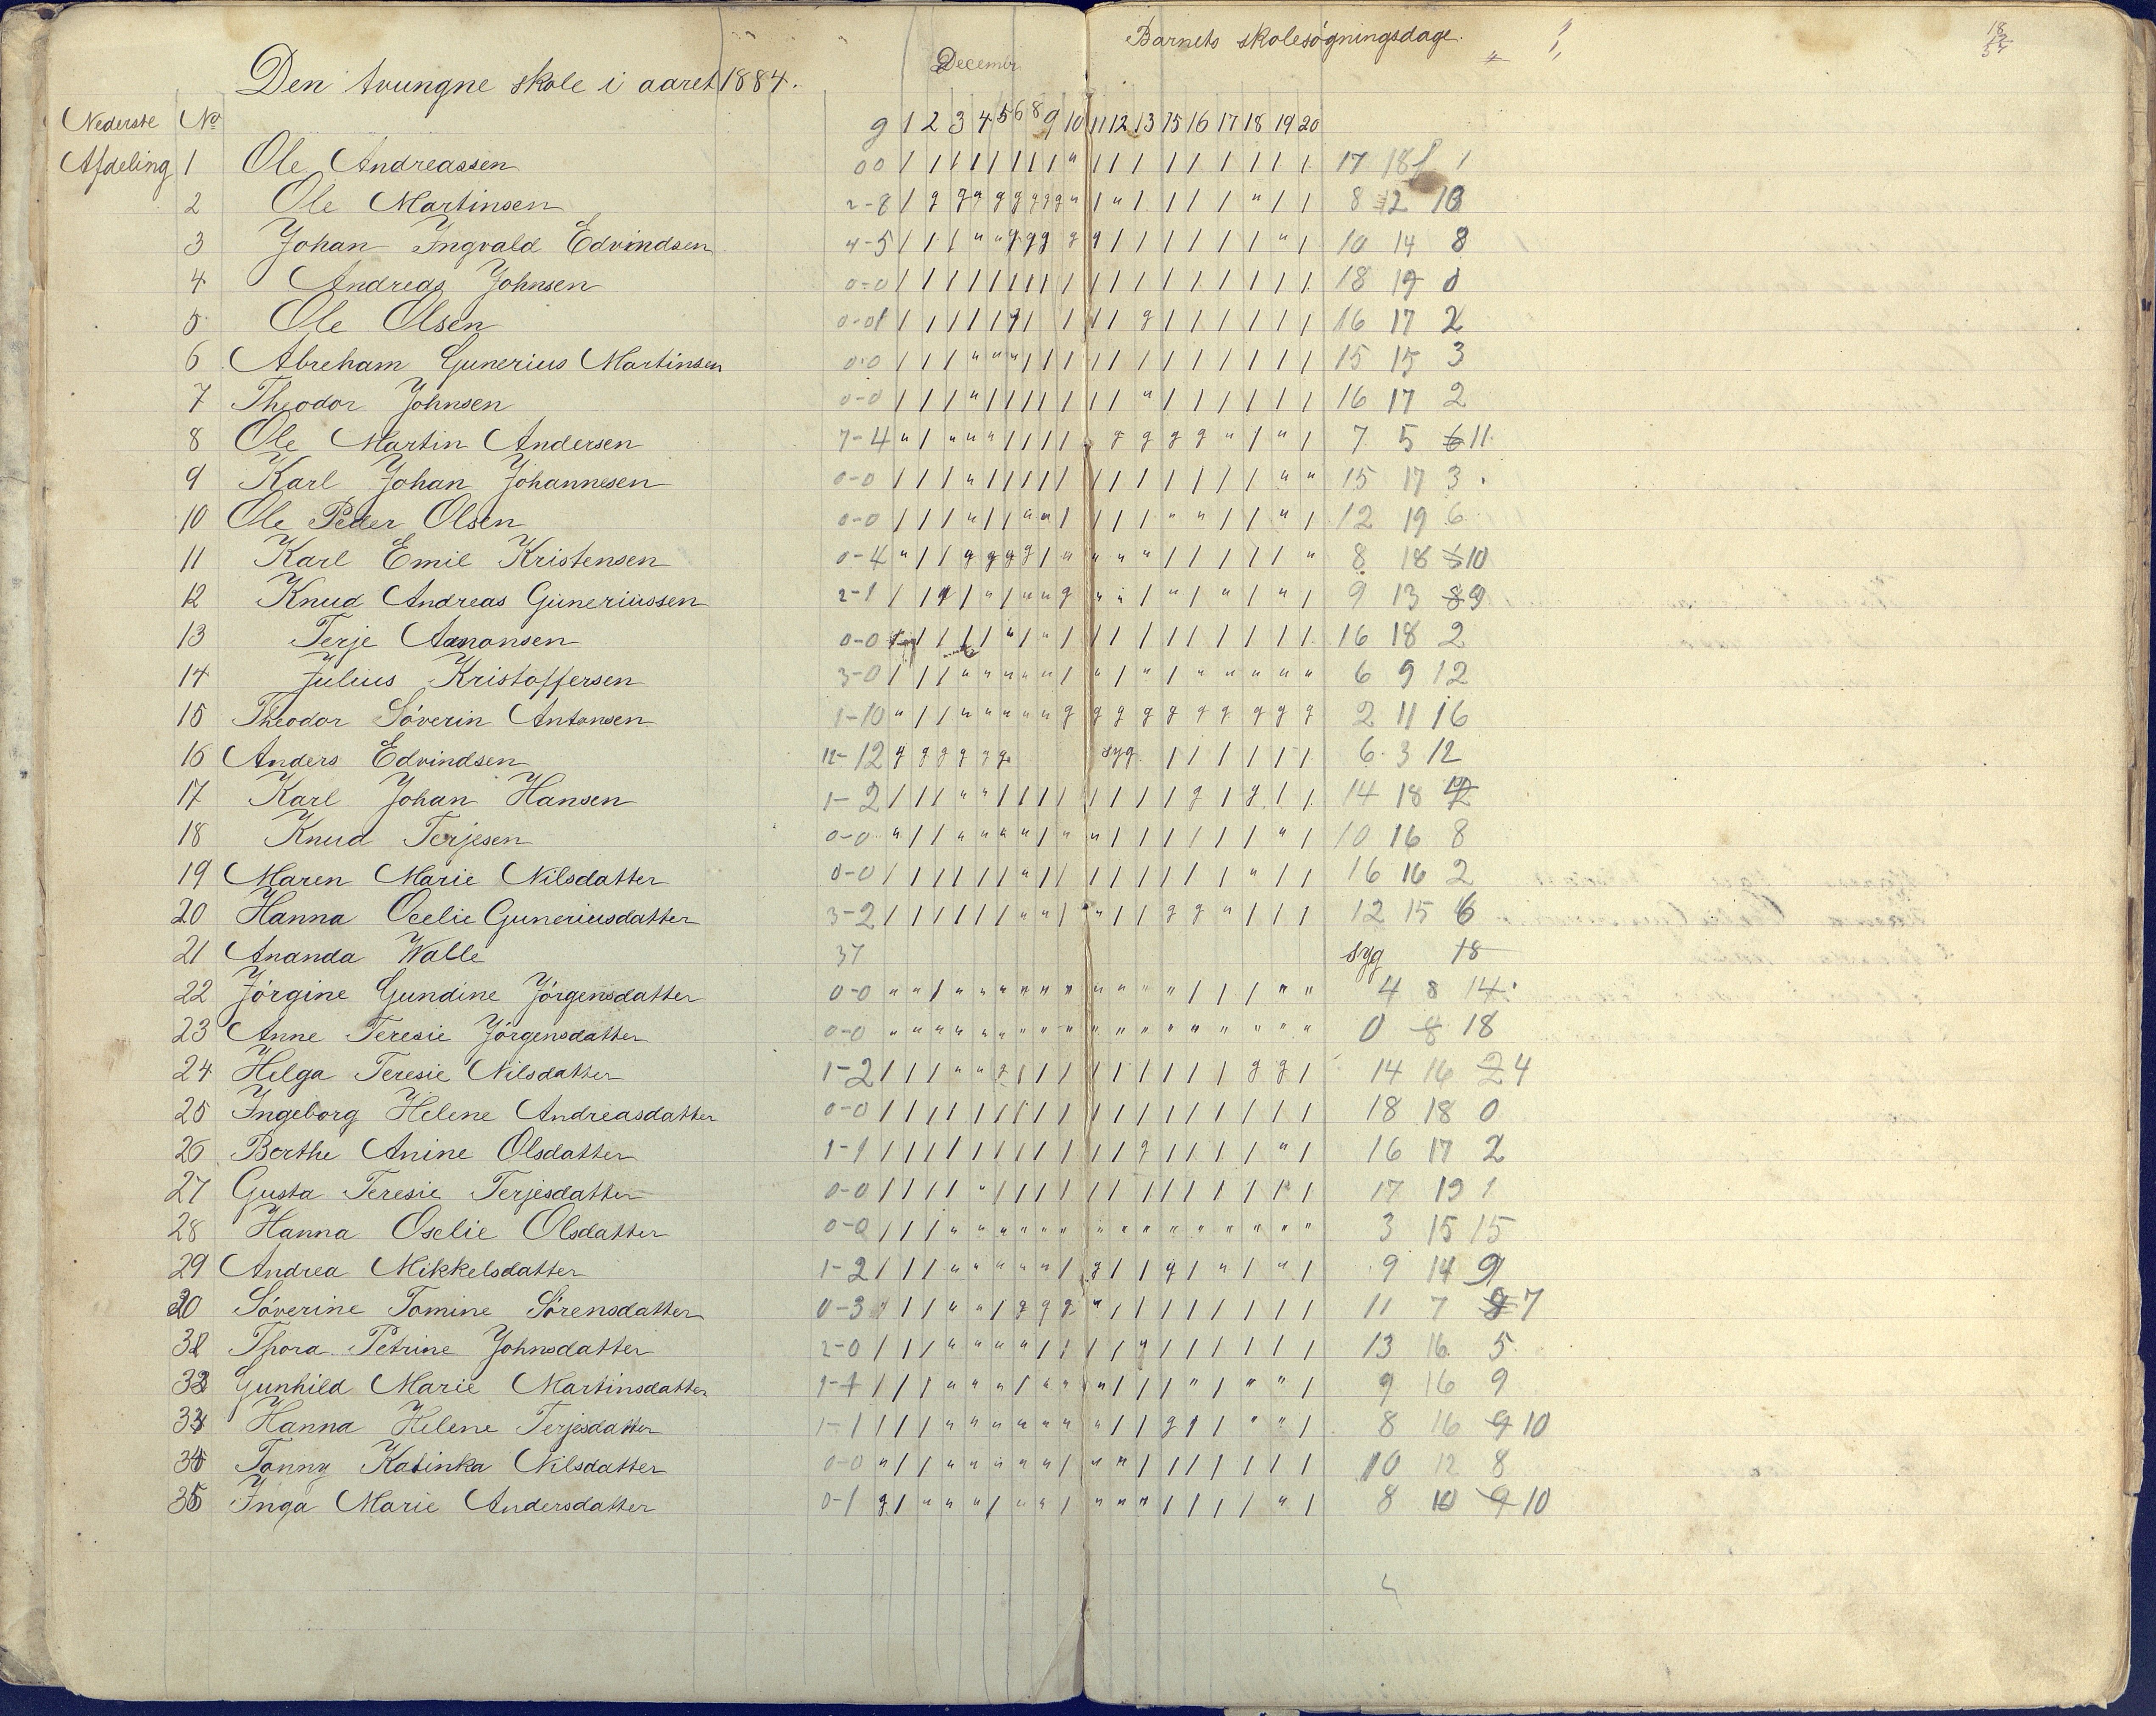 Barnets skolesøgningsdage.
Decembr
Den tvungne skole i aaret 1884.
Nederste No g 1 2 3 4 5 6 8 9 10 11 12 13 15 16 17 18 19 20
Afdeling 1 Ole Andreassen 0 0 / / / / / / / / " / / / / / / / / / 17 18 1
2 Ole Martinsen 2-8 8 12 10
3 Johan Ingvald Edvindsen 4-5 10 14 8
4 Andreas Johnsen 0-0 / / / / / / / / / / / / / / / / / / 18 19 0
5 Ole Olsen 16 17 2
6 Abreham Gunerius Martinsen 0-0 / / / " " " / / / / / / / / / / / / 15 15 3
7 Theodor Johnsen 0-0 / / / " / / / / / / / " / / / / / / 16 17 2
8 Ole Martin Andersen 7-4 7 5 6 11
9 Karl Johan Johannesen 0-0 / / / " / / / / / / / / / / / / " " 15 17 3
10 Ole Peder Olsen 0-0 / / / " / / " " / / / / " " / / " / 12 19 6
11 Karl Emil Kristensen 0-4 " / / g g g g / " " " " / / / / / " 8 18 10
12 Knud Andreas Guneriussen 2-1 9 13 8 9
13 Terje Aanonsen 0-0 16 18 2
14 Julius Kristoffersen 3-0 / / / " " " " " / " / " / " " " " " 6 9 12
15 Theodor Söverin Antonsen 1-10 " / / " " " " " g g g g g g g g g g 2 11 16
16 Anders Edvindsen 12-12 g g g g g g syg / / / / / / 6 3 12
17 Karl Johan Hansen 1-2 / / / " " / / / / / / / / g / g / / 14 18
18 Knud Terjesen 0-0 " / / " " " " / " " / / / / / / " / 10 16 8
19 Maren Marie Nilsdatter 0-0 / / / / / / " / / / / / / / / " / / 16 16 2
20 Hanna Ocelie Guneriusdatter 3-2 / / / / / / " " / " / / g g " / / / 12 15 6
21 Ananda Walle 37 syg 18
22 Jörgine Gundine Jörgensdatter 0-0 " " / " " " " " " " " " " / / / " " 4 8 14
23 Anne Teresie Jörgensdatter 0-0 " " " " " " " " " " " " " " " " " " 0 8 18
24 Helga Teresie Nilsdatter 1-2 / / / " " g / / / / / / / / / g g / 14 16 2 4
25 Ingeborg Helene Andreasdatter 0-0 / / / / / / / / / / / / / / / / / / 18 18 0
26 Berthe Anine Olsdatter 1-1 / / / / / / / / / / / g / / / / " / 16 17 2
27 Gusta Teresie Terjesdatter 0-0 / / / / " / / / / / / / / / / / / / 17 19 1
28 Hanna Oselie Olsdatter 0-0 / / / " " " " " " " " " " " " " " " 3 15 15
29 Andrea Mikkelsdatter 1-2 / / / " " " " " / g / / g / " / " / 9 14 9
30 Söverine Tomine Sörensdatter 0-3 / / / " " / g g g " / / / / / / / / 11 7 7
31 Thora Petrine Johnsdatter 2-0 13 16 5
32 Gunhild Marie Martinsdatter 9 16 9
33 Hanna Helene Terjesdatter 1-1 8 16 9 10
34 Tanny Katinka Nilsdatter 0-0 " / / " " " " " / " " / / / / / / / 10 12 8
35 Inga Marie Andersdatter 0-1 g / " " " / " " / " " " / / / / " / 8 10 9 10